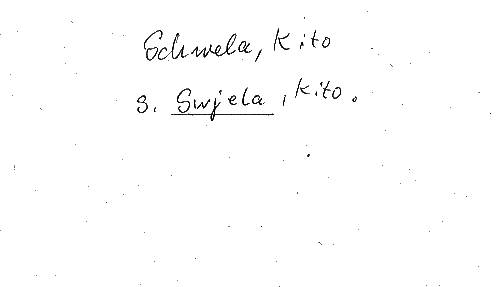 Schwela, Kito
s. Swjela, Kito.